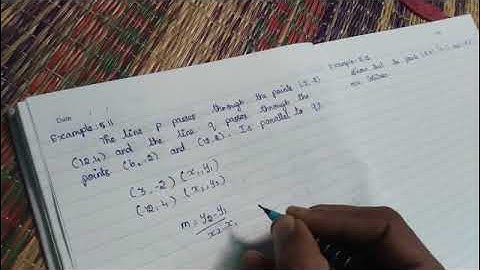 Example: 5.11
The line P passes through the points (3,-2)
(12,4) and the line q passes through the
points (6,-2) and (12,2). Is parallel to q?
(3,-2) (x₁,y₁)
(12,4) (x₂,y₂)
m = y₂-y₁
x₂-x₁
Example: 5.12
the points